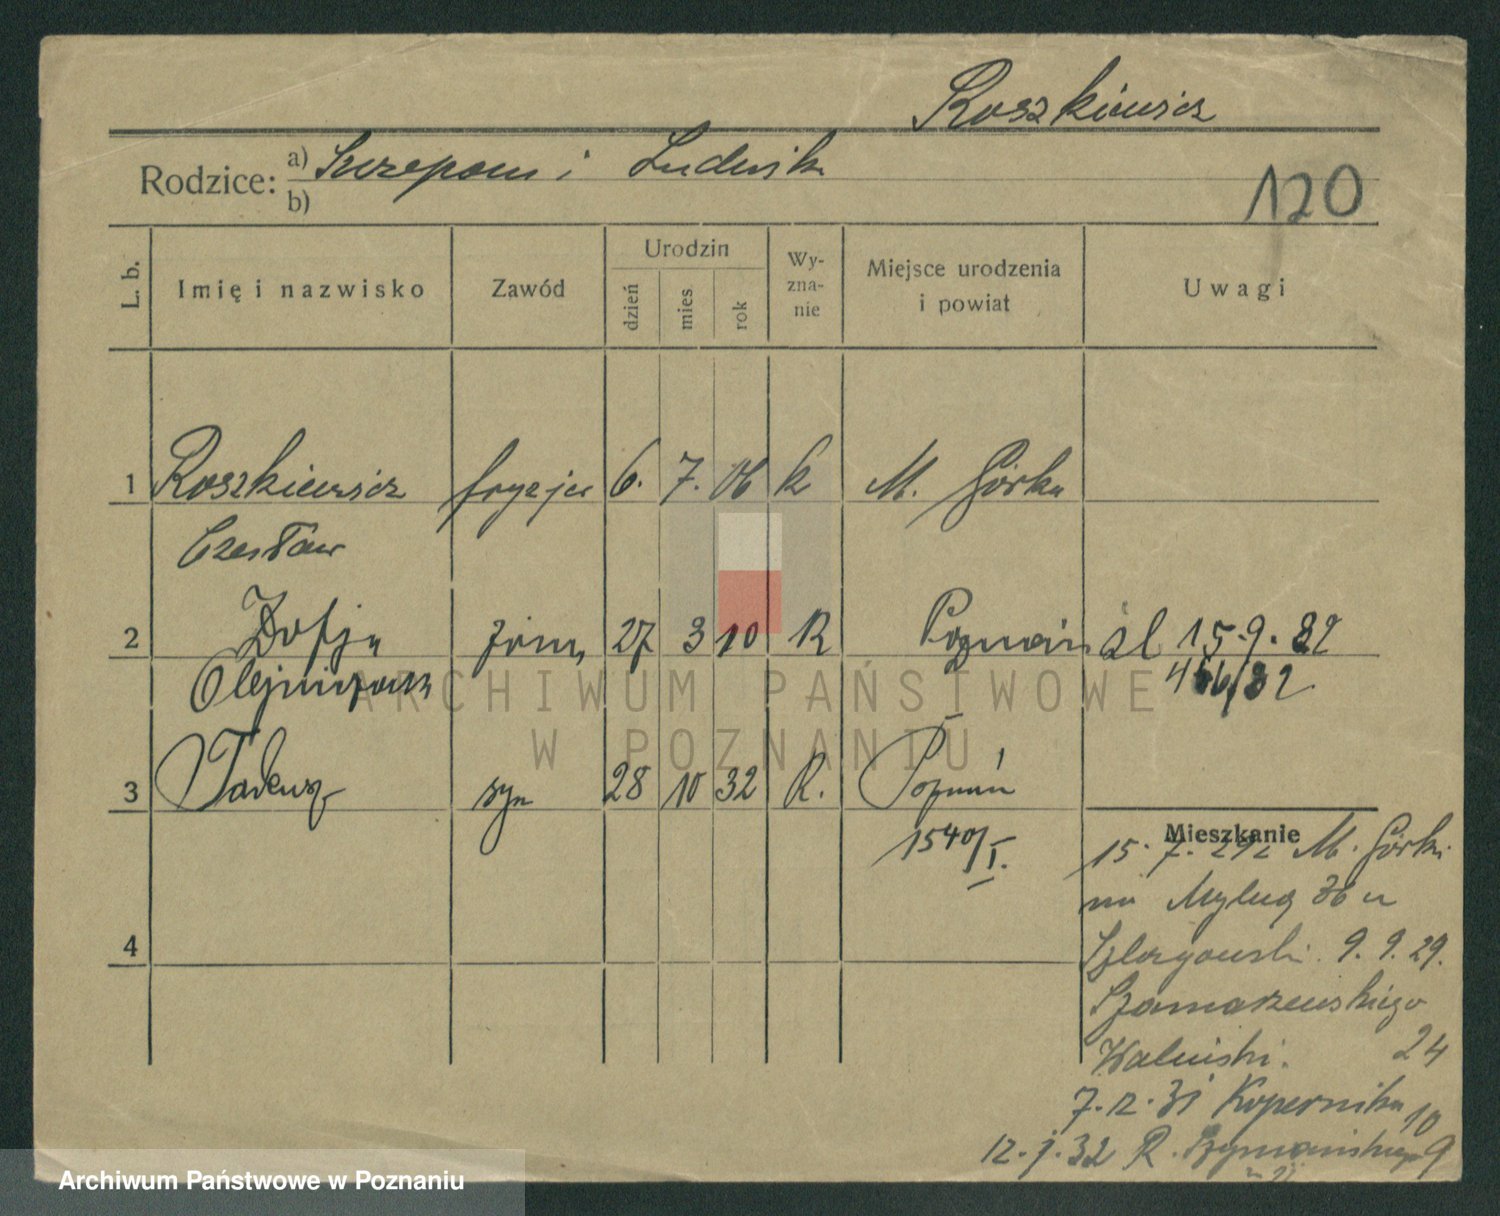 Roszkiewicz
Rodzice: a) Szczepan i Ludwika
b)
120
L. b.
Imię i nazwisko
Zawód
Urodzin
dzień
mies
rok
Wy-
zna-
nie
Miejsce urodzenia
i powiat
Uwagi
1 Roszkiewicz fryzjer 6. 7. 06 k M. Górka
Czesław
2 Zofja żona 27 3 10 R Poznań śl 15.9.32
Olejniczak 466/32
3 Tadeusz syn 28 10 32 R. Poznań
1540/I.
Mieszkanie
15. 7. 29 z M. Górki
na 36 u
9. 9. 29.
Szamarzewskiego
24
7. 12. 31 Kopernika 10
12. 1. 32 R. Szymańskiego 9
4
ARCHIWUM PAŃSTWOWE
W POZNANIU
Archiwum Państwowe w Poznaniu